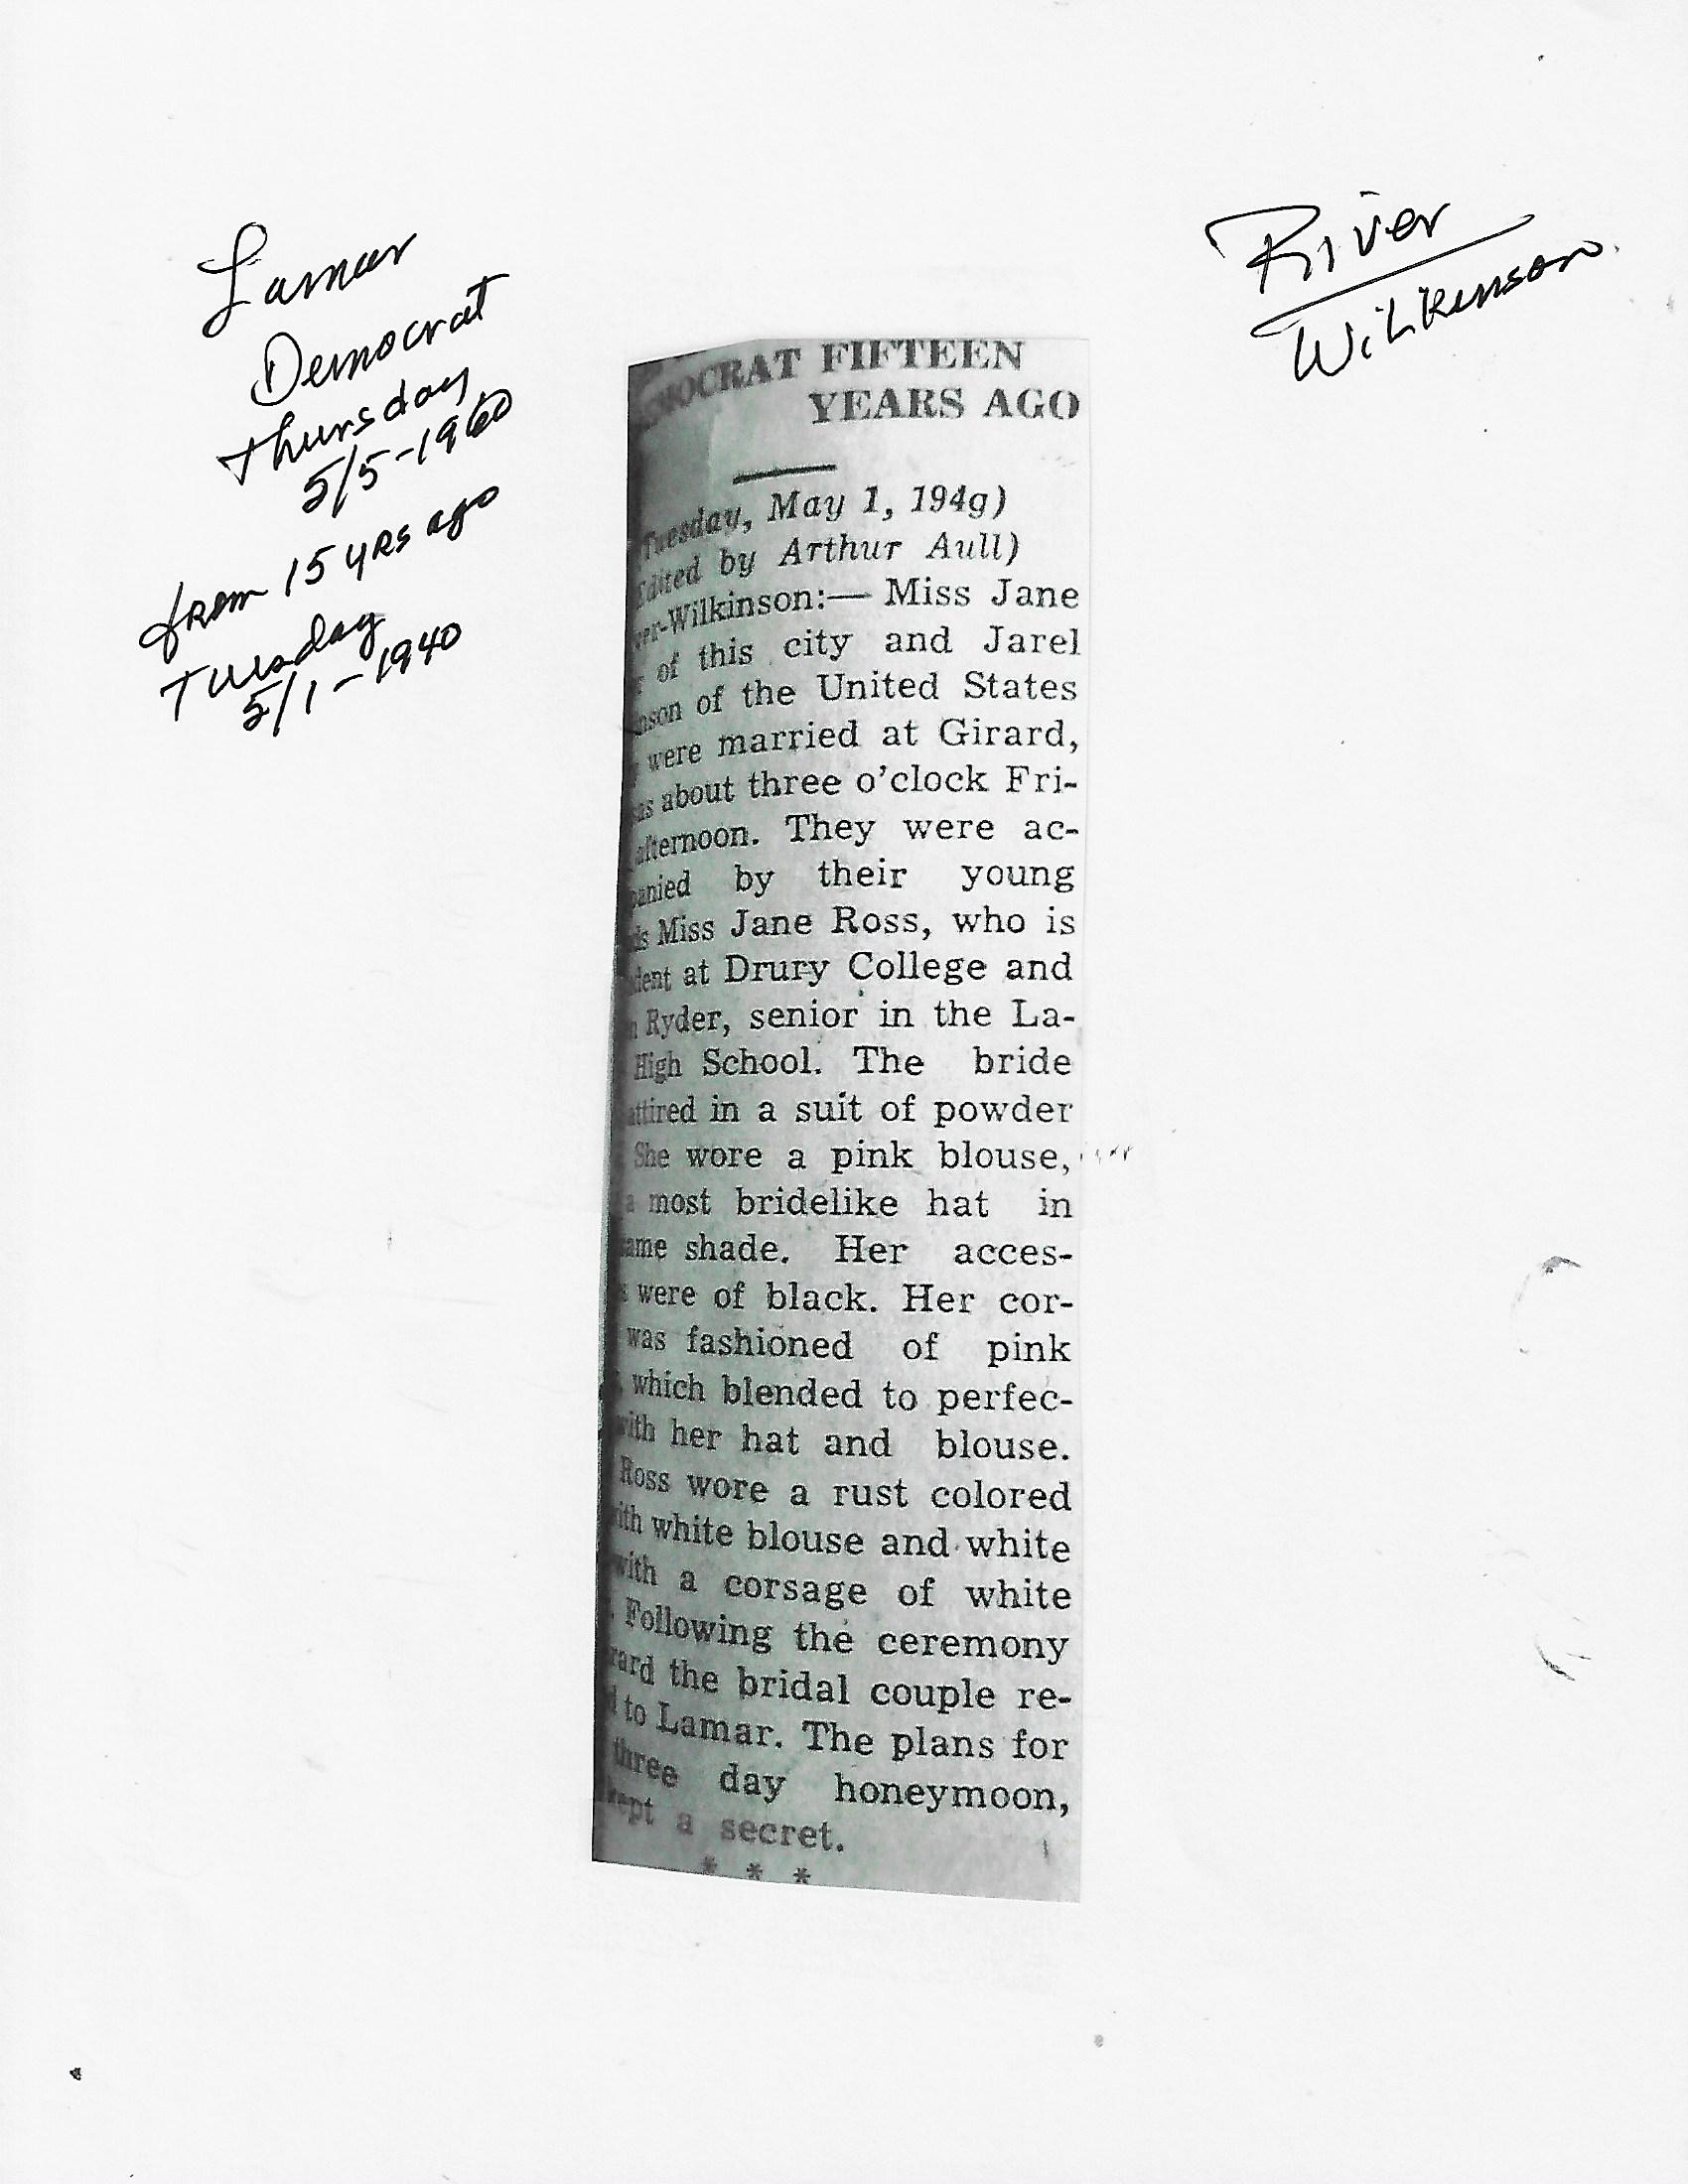 Lamar
Democrat
Thursday
5/5-1960
from 15 yrs ago
Tuesday
5/1-1940
River
Wilkinson
MOCRAT FIFTEEN
YEARS AGO
Tuesday, May 1, 194g)
Edited by Arthur Aull)
ver-Wilkinson:— Miss Jane
r of this city and Jarel
nson of the United States
were married at Girard,
as about three o'clock Fri-
afternoon. They were ac-
panied by their young
ds Miss Jane Ross, who is
dent at Drury College and
n Ryder, senior in the La-
High School. The bride
attired in a suit of powder
She wore a pink blouse,
a most bridelike hat in
ame shade. Her acces-
s were of black. Her cor-
was fashioned of pink
which blended to perfec-
with her hat and blouse.
Ross wore a rust colored
ith white blouse and white
with a corsage of white
. Following the ceremony
rard the bridal couple re-
d to Lamar. The plans for
three day honeymoon,
kept a secret.
* * *